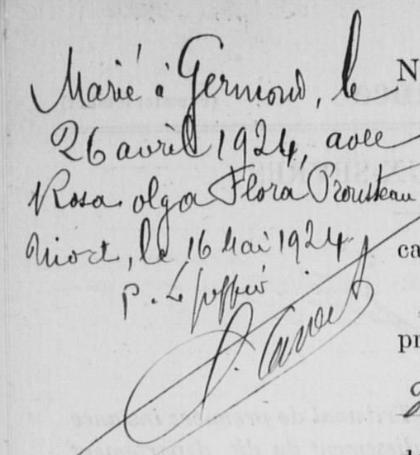 Marié à Germond, le
26 avril 1924, avec
Rosa Olga Flora Prousteau
Niort, le 16 Mai 1924
P. Le
N
ca
pr